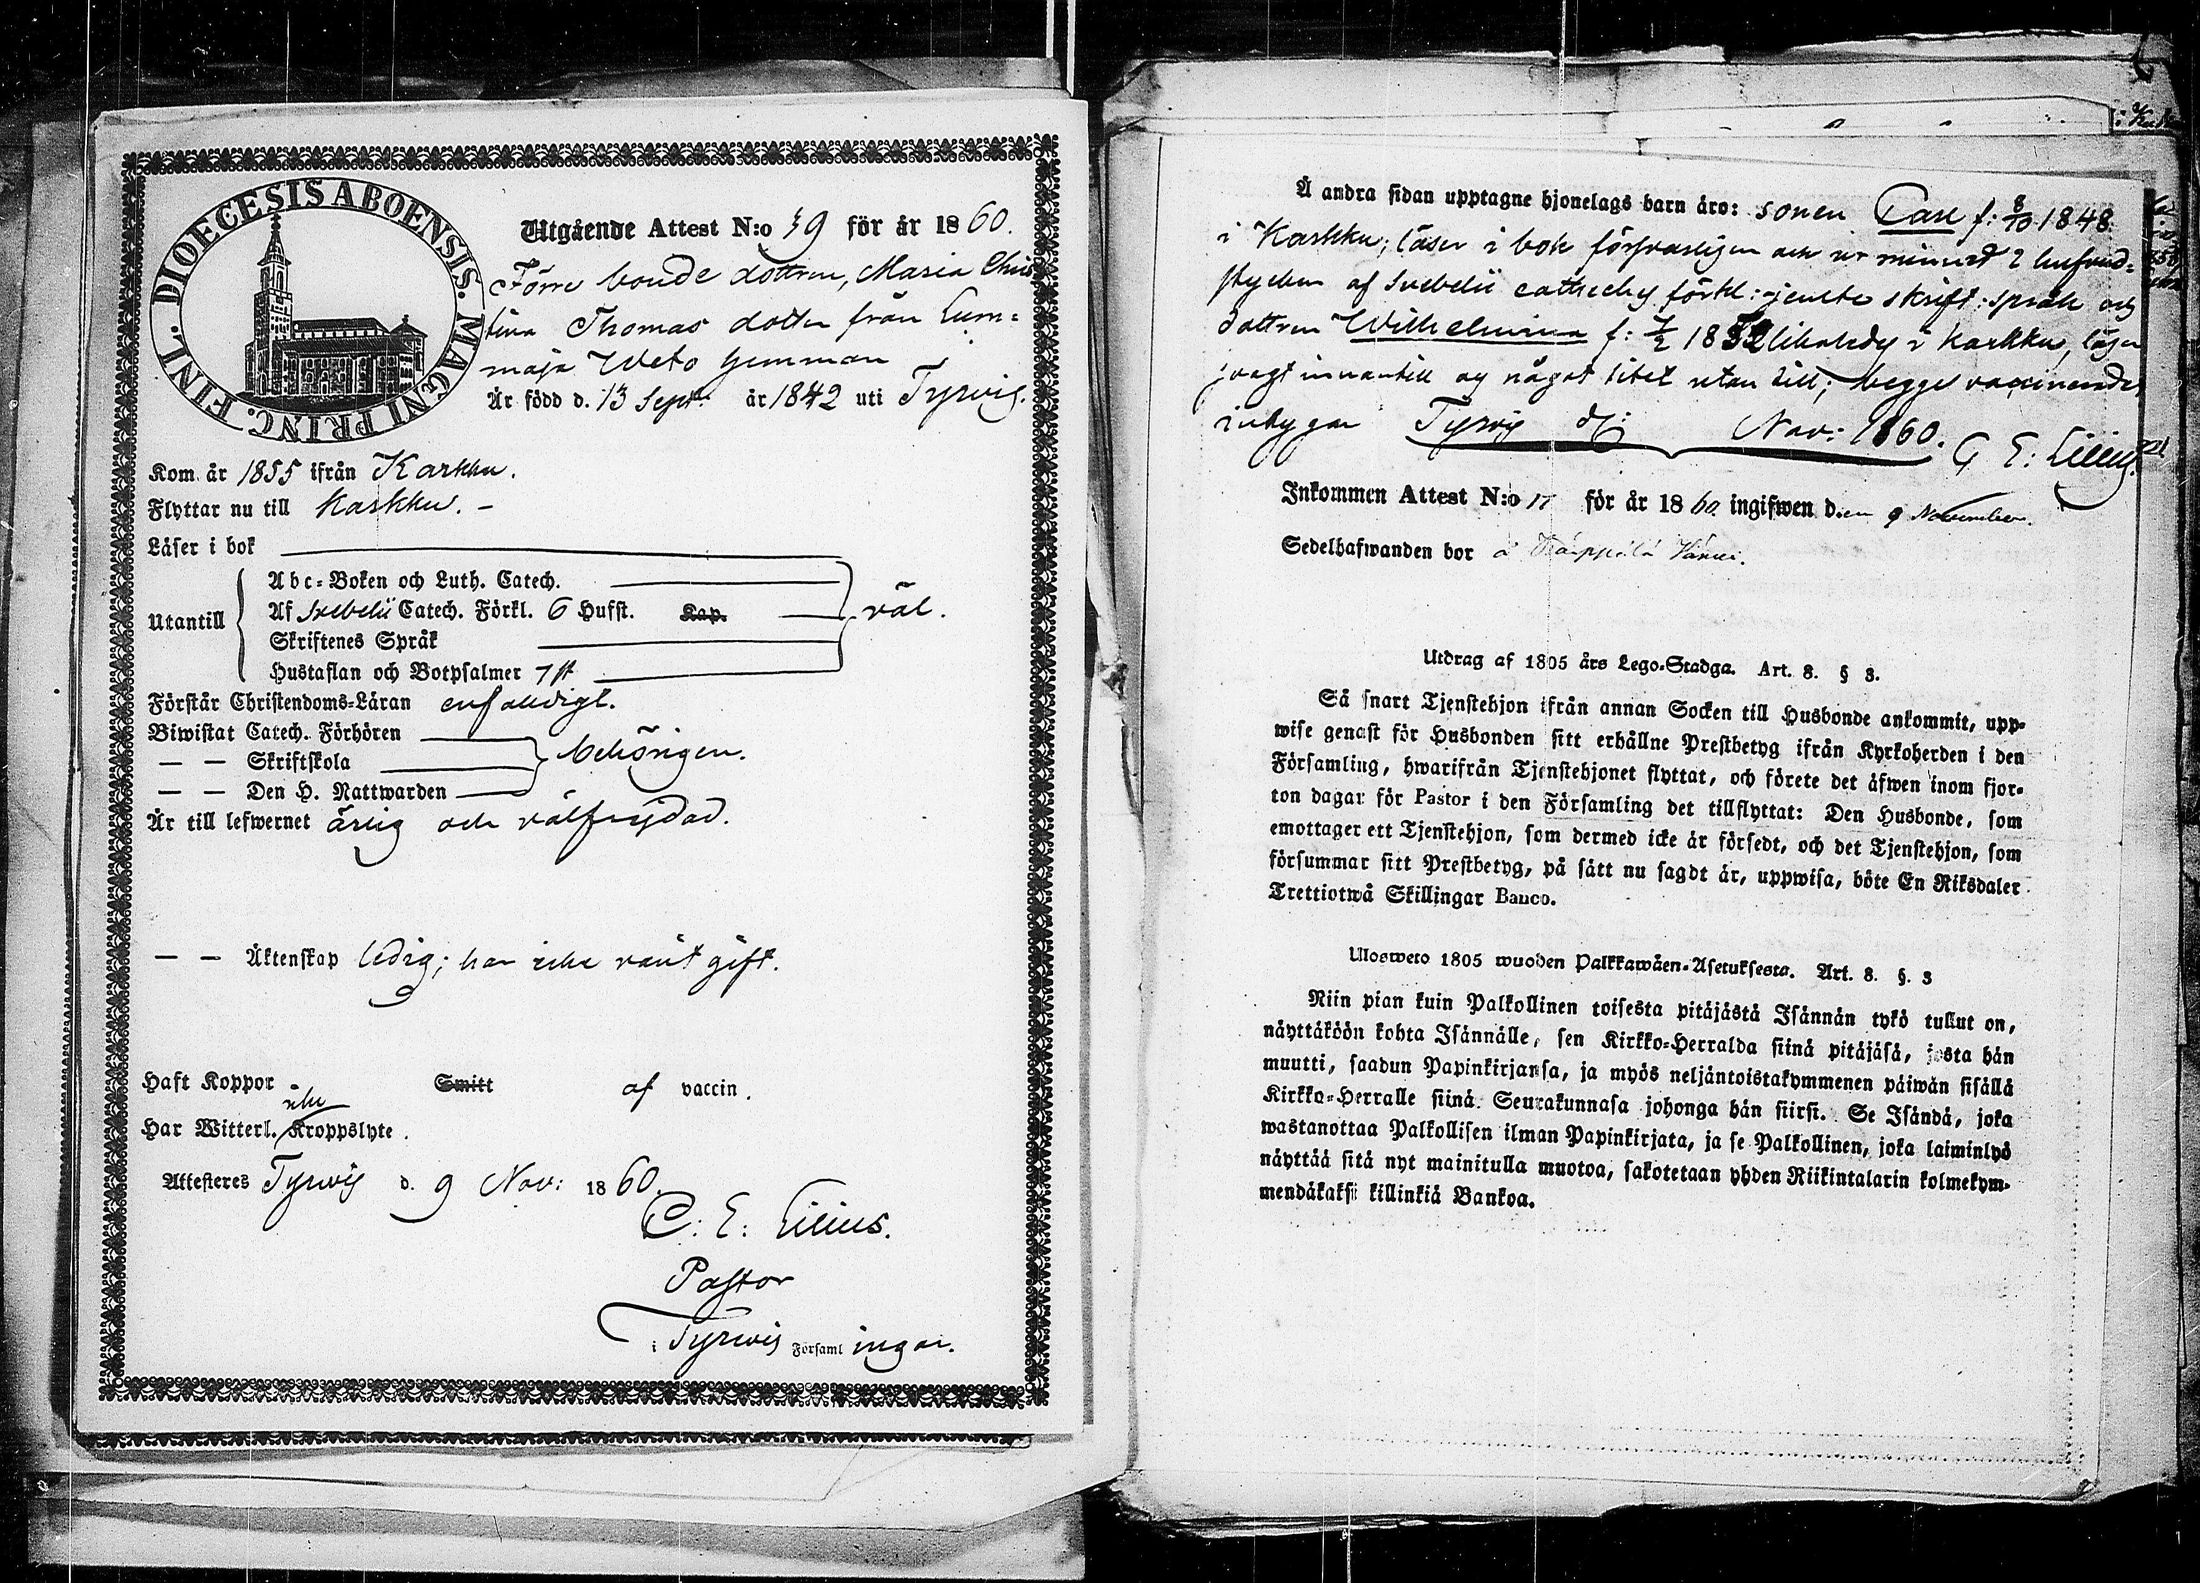 FINL. DIOECESIS ABOENSIS. MAGNI PRINC.
Utgående Attest N:o 39 för år 1860.
Förre bonde dottren, Maria Chris
tina Thomas dotter från Lum=
maja Weto hemman
Är född d. 13 Sept: år 1842 uti Tyrvis.
Kom år 1855 ifrån Karkku.
Flyttar nu till Karkku. –
Läser i bok
Utantill
Abc-Boken och Luth. Catech.
Af Svebelii Catech. Förkl. 6 Hufst. Kap. väl.
Skriftenes Språk
Hustaflan och Botpsalmer 7 st
Förstår Christendoms-Läran enfaldigt.
Biwistat Catech. Förhören
— — Skriftskola behörigen.
— — Den H. Nattwarden
Är till lefwernet ärlig och välfrejdad.
— — Äktenskap ledig; har icke varit gift.
Haft Koppor Smitt af vaccin.
icke
Har Witterl. Kroppslyte.
Attesteres Tyrvis d. 9 Nov: 1860.
C: E: Lilius.
Pastor
i Tyrvis Församl ingar.
Å andra sidan upptagne hjonelags barn äro: sonen Carl f: 8/10 1848
i Karkku; läser i bok försvarligen och är minnet 2 hufvud=
stycken af Svebelii catheches förkl: jemte skrift: språk och
dottren Wilhelmina f: 7/2 1852 likaledes i Karkku, läser
svagt innantill og något litet utan till; begge vaccinerade,
intygar Tyrvis d: Nov: 1860. C E: Lilius.
Inkommen Attest N:o 17 för år 1860 ingifwen den 9 November.
Sedelhafwanden bor å Karppälä
Utdrag af 1805 års Lego-Stadga. Art. 8. § 3.
Så snart Tjenstehjon ifrån annan Socken till Husbonde ankommit, upp-
wise genast för Husbonden sitt erhållne Prestbetyg ifrån Kyrkoherden i den
Församling, hwarifrån Tjenstehjonet flyttat, och förete det äfwen inom fjor-
ton dagar för Pastor i den Församling det tillflyttat: Den Husbonde, som
emottager ett Tjenstehjon, som dermed icke är försedt, och det Tjenstehjon, som
försummar sitt Prestbetyg, på sätt nu sagdt är, uppwisa, böte En Riksdaler
Trettiotwå Skillingar Banco.
Ulosweto 1805 wuoden Palkkawäen-Asetuksesta. Art. 8. §. 3
Niin pian kuin Palkollinen toisesta pitäjästä Isännän tykö tullut on,
näyttäköön kohta Isännälle, sen Kirkko-Herralda siinä pitäjäsä, josta hän
muutti, saadun Papinkirjansa, ja myös neljäntoistakymmenen päiwän sisällä
Kirkko-Herralle siinä Seurakunnasa johonga hän siirsi. Se Isändä, joka
wastanottaa Palkollisen ilman Papinkirjata, ja se Palkollinen, joka laiminlyö
näyttää sitä nyt mainitulla muotoa, sakotetaan yhden Riikintalarin kolmekym-
mendäkaksi killinkiä Bankoa.